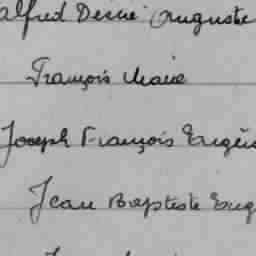 Alfred Désiré Auguste
François Marie
Joseph François Eugèn
Jean Baptiste Eug